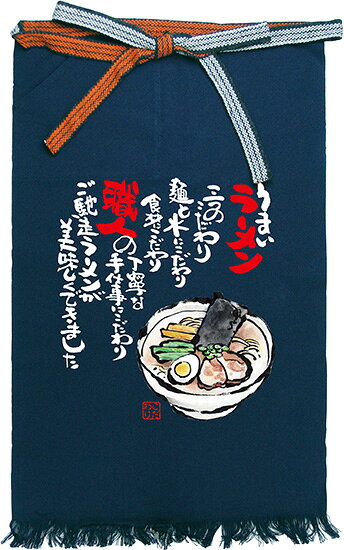 うまい
ラーメン
三つのこだわり
麺と水にこだわり
食材にこだわり
職人の丁寧な
手仕事にこだわり
ご馳走ラーメンが
美味しくできました